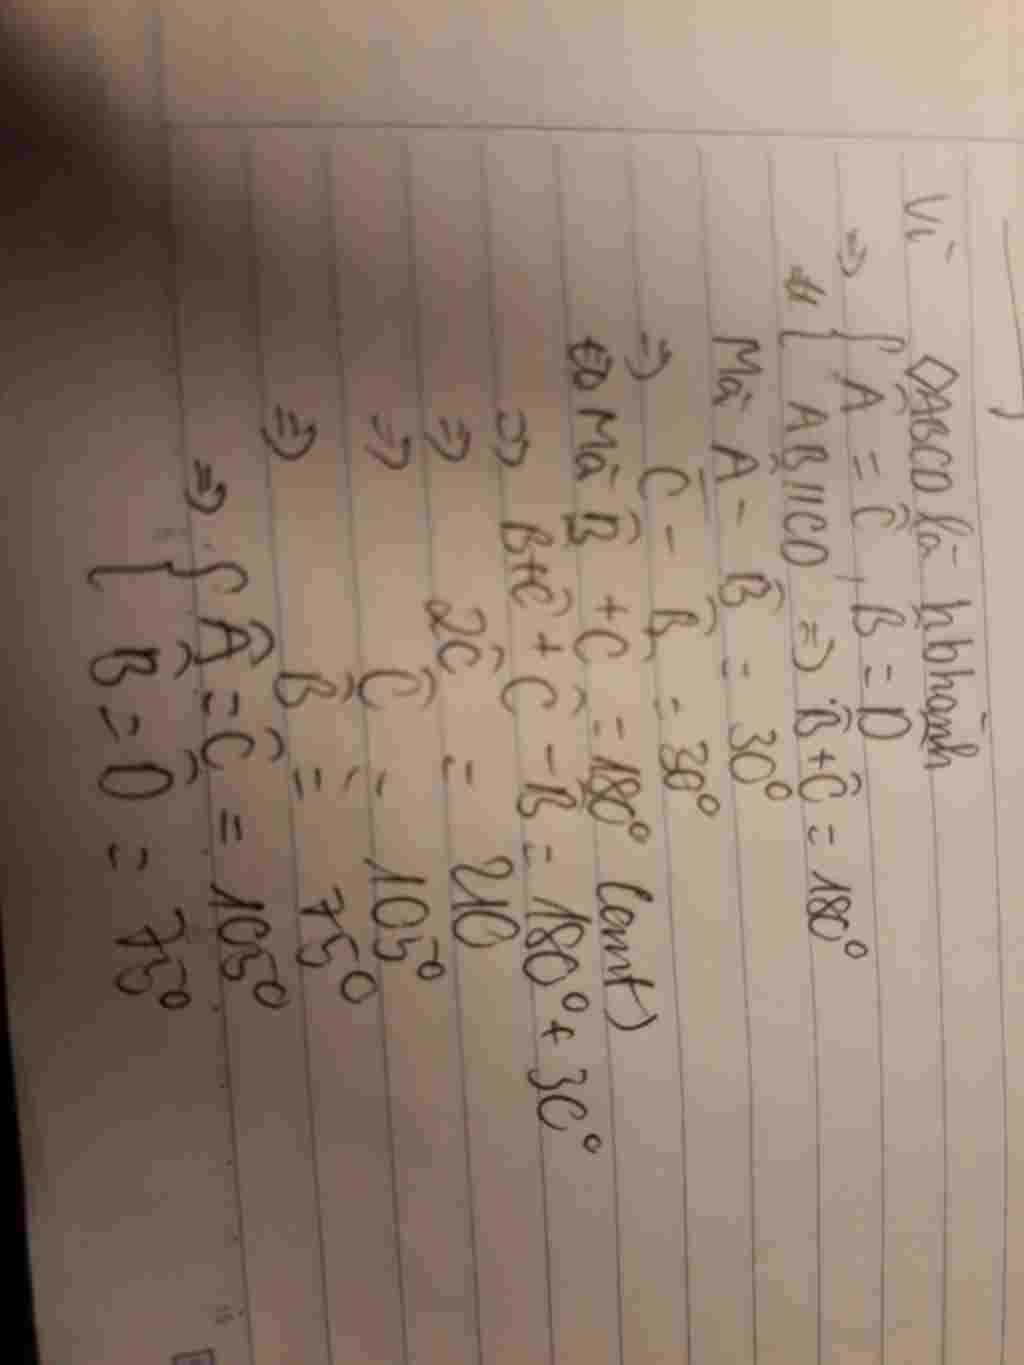 Vì ◇ABCD là hbhành
=> { Â = Ĉ, B̂ = D̂
{ AB//CD => B̂ + Ĉ = 180°
Mà Â - B̂ = 30°
=> Ĉ - B̂ = 30°
Mà B̂ + Ĉ = 180° (cmt)
=> B̂ + Ĉ + Ĉ - B̂ = 180° + 30°
=> 2Ĉ = 210
=> Ĉ = 105°
=> B̂ = 75°
=> { Â = Ĉ = 105°
{ B̂ = D̂ = 75°